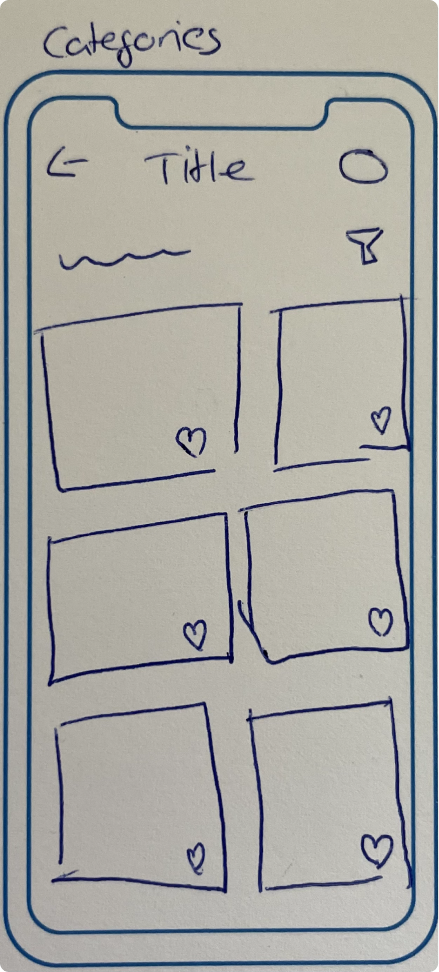 Categories
Title